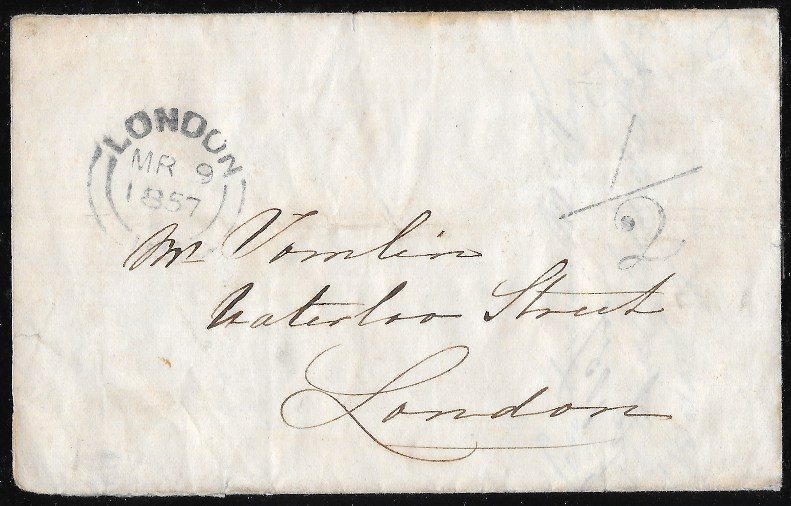 LONDON
MR 9
1857
1/2
Mr. Tomlin
Waterloo Street
London